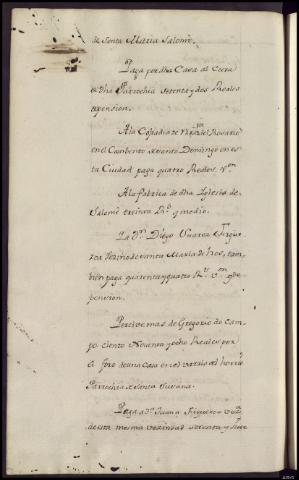 de Santa Maria Salomé.
Paga por dha Casa al Cura
de dha Parrochia setenta y dos Reales
de pension.
A la Cofradia de Nra. del Rosario
en el Combento de Santo Domingo en es
ta Ciudad paga quatro Reales Vn.
A la fabrica de dha Iglesia de
Salomé treinta Rs. y medio.
Diego Suarez
Vezino de Santa Maria de
bien paga quarenta y quatro Rs. Vn. de
pension.
Percive mas de Gregorio de Cam
po ciento Noventa y ocho Reales por
el foro de una Casa en el varrio del
Parrochia de Santa Susana.
Paga a Dn. Juan Figueroa
de esta misma vezindad setenta y siete